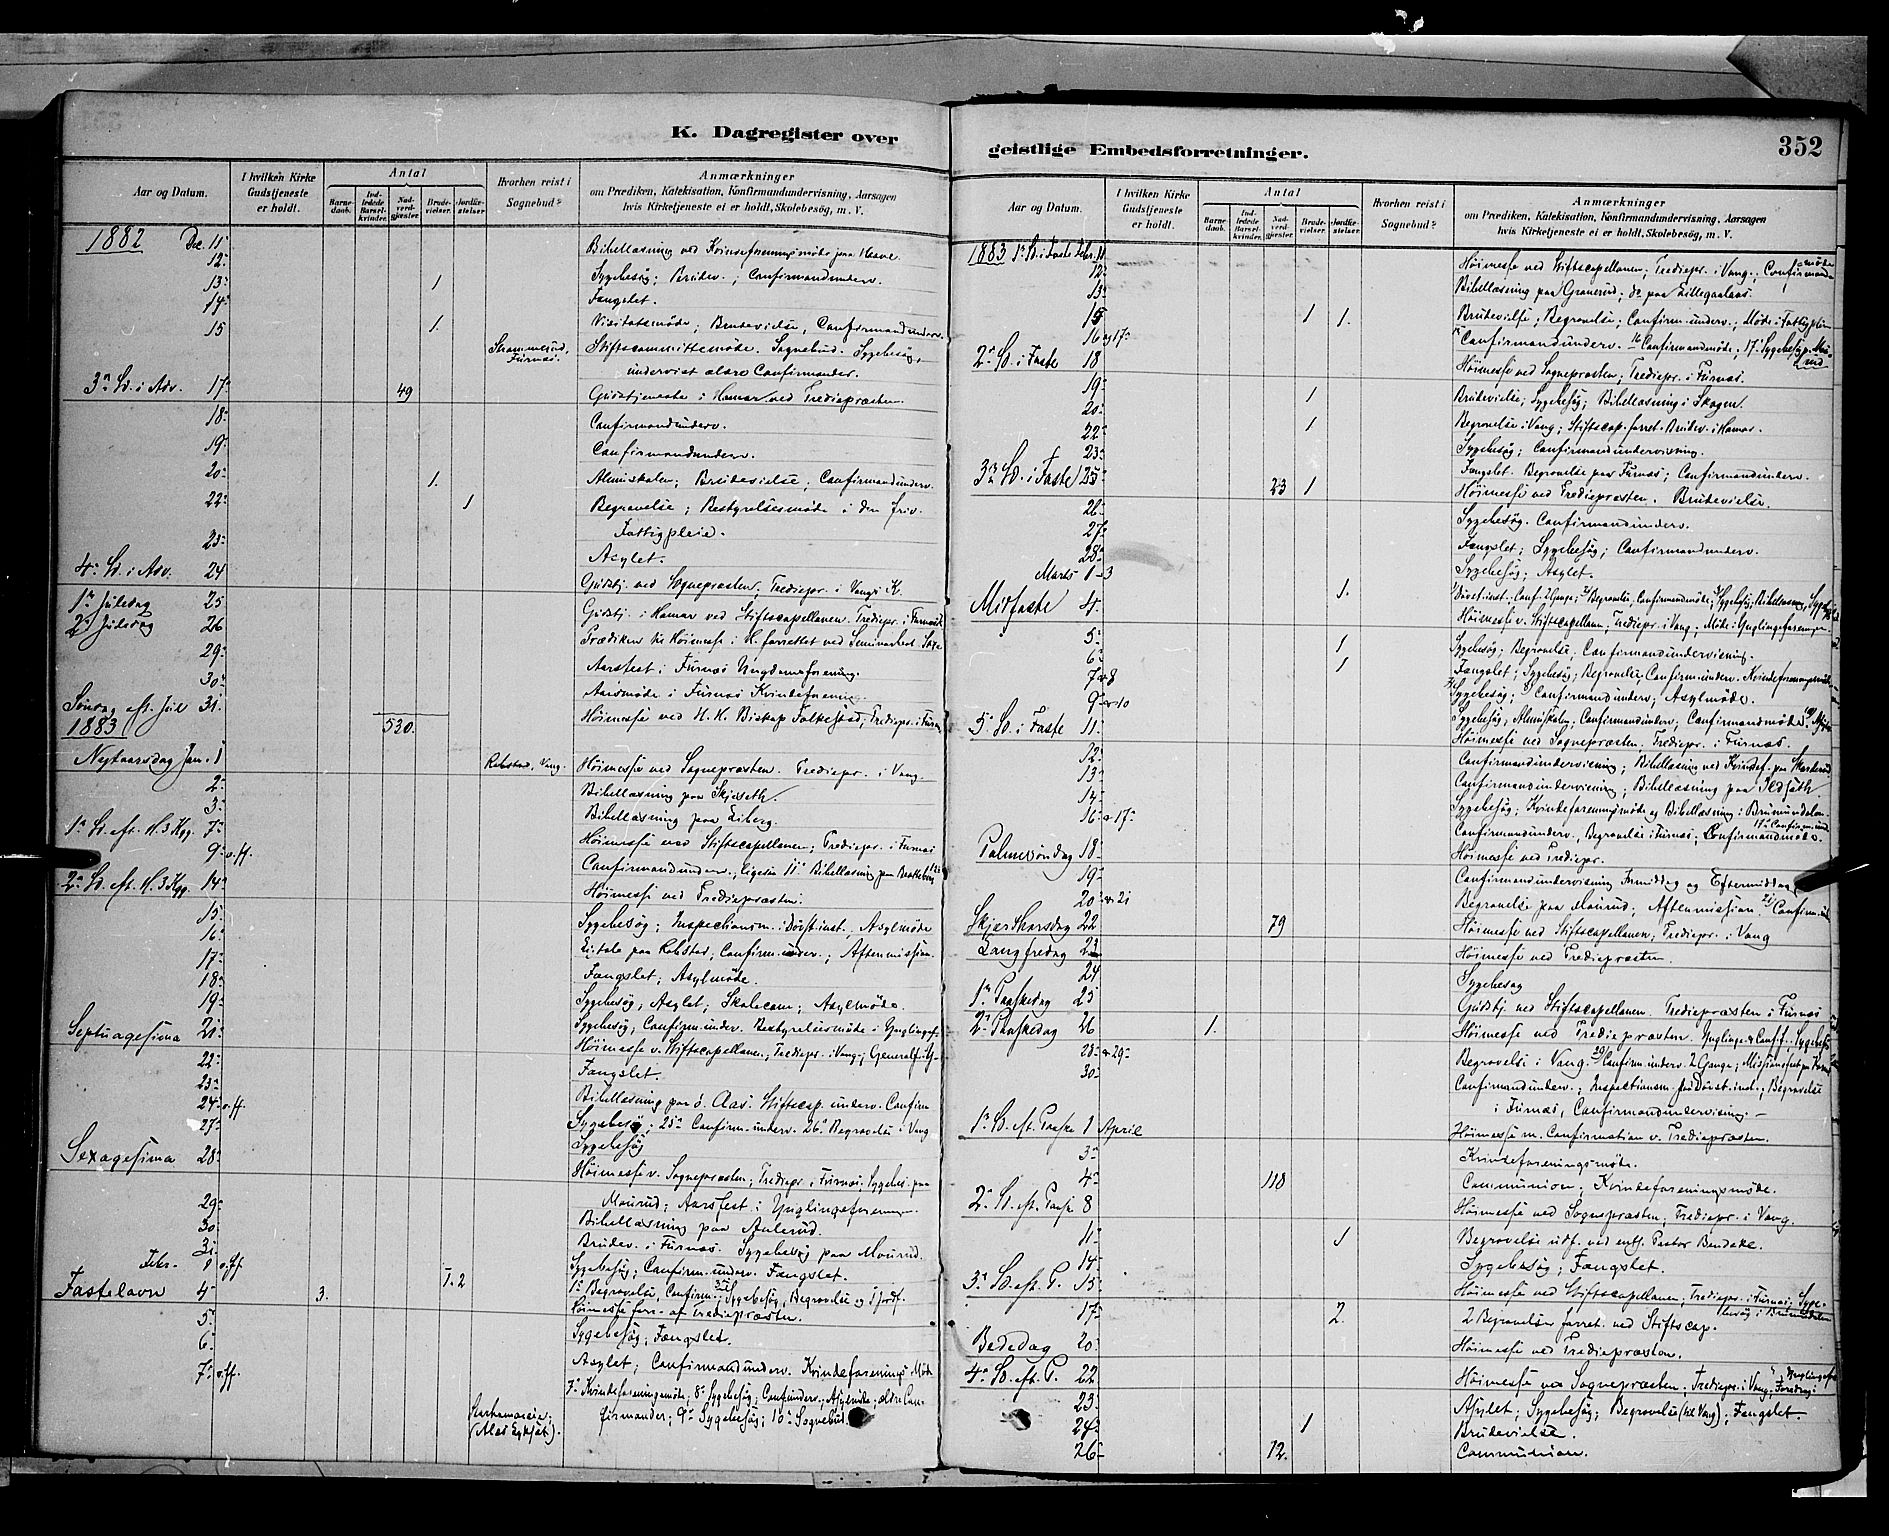 K. Dagregister over
Aar og Datum.
I hvilken Kirke Gudstjeneste er holdt.
Antal
Barne-daab.
Ind-ledede Barsel-kvinder.
Nad-verd-gjæster.
Brude-vielser.
Jordfæ-stelser
Hvorhen reist i Sognebud?
Anmærkninger
om Prædiken, Katekisation, Konfirmandundervisning, Aarsagen
hvis Kirketjeneste ei er holdt, Skolebesøg, m. V.
1882 Dec. 11 Bibellæsning ved Kvindeforeningsmøde paa
12
13 1 Sygebesøg; Brudev.; Confirmandunderv.
14 Fangslet.
15 1. Visitatsmøde; Brudevielse, Confirmandunderv.
Furnæs. Stiftscommittemøde. Sognebud. Sygebesøg,
Confirmander.
3die Sd. i Adv. 17 49 Gudstjeneste i Hamar ved Trediepræsten.
18 Confirmandunderv.
19 Confirmandunderv.
20 1. Almuskolen; Brudevielse; Confirmandunderv.
22 1 Begravelse; Bestyrelsesmøde i den friv.
Fattigpleie.
23 Asylet.
4de Sd. i Adv. 24 Gudstj. ved Sognepræsten; Trediepr. i Vangs K.
1ste Juledag 25 Gudstj. i Hamar ved Stiftscapellanen. Trediepr. i Furnæs
2den Juledag 26 Prædiken
29 Aarsfest i Furnæs Ungdomsforening.
30 Aarsmøde i Furnæs Kvindeforening.
Søndag eft. Jul 31. Høimesse ved H. H. Biskop Folkestad; Trediepr. i Furnæs
1883 530.
Nytaarsdag Jan. 1 Vang. Høimesse ved Sognepræsten. Trediepr. i Vang.
2 Bibellæsning paa Skjeseth.
3 Bibellæsning paa
1ste Sd. eft. H. 3 Kgg. 7 Høimesse ved Stiftscapellanen; Trediepr. i Furnæs
9 o. ff. Confirmandunderv., Bibellæsning paa
2den Sd. eft. H. 3 Kgg. 14 Høimesse ved Trediepræsten.
15 Sygebesøg; Inspectionsm. i Døvst. inst., Asylmøde
16 Confirm. underv.; Aftenmission.
17 Fangslet; Asylmøde.
18 Sygebesøg, Asylet; Skolecom; Asylmøde
19 Sygebesøg; Confirm. underv. Bestyrelsesmøde i Ynglingef.
Septuagesima 21 Høimesse v. Stiftscapellanen; Trediepr. i Vang;
22 Fangslet.
23 Bibellæsning paa ø. Aas. Stiftscap. underv. Confirm
24 o. ff. Sygebesøg; 25 Confirm. underv. 26 Begravelse i Vang
27 Sygebesøg
Sexagesima 28 Høimesse v. Sognepræsten; Trediepr. i Furnæs. Sygebes. paa
Maurud; Aarsfest i Ynglingeforeningen
29 Bibellæsning paa
30 Brudev. i Furnæs. Sygebesøg paa Maurud.
31 Sygebesøg; Confirm. underv. Fangslet.
Febr. 1 o. ff 1. 2 Begravelse, Confirm.; Sygebesøg, Begravelse og 1 Jordf.
Fastelavn 4 3. Høimesse forr. af Trediepræsten.
5 Sygebesøg; Fangslet.
6 Asylet; Confirmandunderv. Kvindeforenings Møde
7 o. ff. 7 Kvindeforeningsmøde; 8 Sygebesøg; Confunderv.; Asylmøde; ældre Con-
firmander; 9 Sygebesøg; 10 Sognebud
geistlige Embedsforretninger.
352
Aar og Datum.
I hvilken Kirke Gudstjeneste er holdt.
Antal
Barne-daab.
Ind-ledede Barsel-kvinder.
Nad-verd-gjæster.
Brude-vielser.
Jordfæ-stelser.
Hvorhen reist i Sognebud?
Anmærkninger
om Prædiken, Katekisation, Konfirmandundervisning, Aarsagen
hvis Kirketjeneste ei er holdt, Skolebesøg, m. V.
1883 1ste Sd. i Faste Febr. 11 Høimesse ved Stiftscapellanen; Trediepr. i Vang; Confirmand-møde
12 Bibellæsning paa Granerud; do paa Lillegaalaas.
13
15 1 1. Brudevielse; Begravelse; Confirm. underv.; Møde i Fattigplein
16 og 17 Confirmandunderv. 16 Confirmandmøde, 17 Sygebesøg p. Mau-rud
2den Sd. i Faste 18 Høimesse ved Sognepræsten; Trediepr. i Furnæs.
19 1 Brudevielse; Sygebesøg; Bibellæsning i Skogen.
20
22 1 Begravelse i Vang; Stiftscap. forret. Brudev. i Hamar.
23 Sygebesøg; Confirmandundervisning.
Fangslet. Begravelse paa Furnæs; Confirmandunderv.
3die Sd. i Faste 25 23 1 Høimesse ved Trediepræsten. Brudevielse.
26 Sygebesøg. Confirmandunderv.
27 Fangslet; Sygebesøg; Confirmandunderv.
28 Sygebesøg; Asylet.
Marts 1-3 1. Døvst. inst.; Conf. 2 Gange; Begravelse, Confirmandmøde; Sygebesøg; Bibellæsning,
Midfaste 4 Høimesse v. Stiftscapellanen; Trediepr. i Vang; Møde i Ynglingeforeningen
5 1 Sygebesøg; Begravelse. Confirmandundervisning.
6 1 Fangslet; Sygebesøg; Begravelse; Confirm. underv. Kvindeforeningsmøde
7 & 8 Sygebesøg; Confirmandunderv; Asylmøde.
9 & 10 Sygebesøg; Almuskolen; Confirmandunderv; Confirmandmøde.
5te Sd. i Faste 11 Høimesse ved Sognepræsten. Trediepr. i Furnæs.
12 Confirmandundervisning; Bibellæsning ved Kvindef. paa
13 Confirmandundervisning; Bibellæsning paa
14 Sygebesøg; Kvindeforeningsmøde og Bibellæsning i Brumunddalen.
16 & 17 Confirmandunderv., Begravelse i Furnæs; Confirmandmøde.
Palmesøndag 18 Høimesse ved Trediepr.
19 Confirmandundervisning Formiddag og Eftermiddag
20 & 21 Begravelse paa Maurud; Aftenmission 21 Confirm. und
Skjærthorsdag 22 79 Høimesse ved Stiftscapellanen; Trediepr. i Vang
Langfredag 23 Høimesse ved Trediepræsten.
24 Sygebesøg
1ste Paaskedag 25 Gudstj. ved Stiftscapellanen. Trediepræsten i Furnæs
2den Paaskedag 26 1. Høimesse ved Trediepræsten.
28 & 29 Begravelse i Vang. 29 Confirm. underv. 2 Gange;
30 Confirmandunderv.; Inspectionsm. paa Døvst. inst.; Begravelse
i Furnæs, Confirmandundervisning.
1ste Sd. eft. Paaske 1 April Høimesse m. Confirmation v. Trediepræsten.
3 Kvindeforeningsmøde.
4 118 Communion; Kvindeforeningsmøde.
2den Sd. eft. Paaske 8 Høimesse ved Sognepræsten; Trediepr. i Vang.
11 1 Begravelse udf. ved Pastor
14 Sygebesøg; Fangslet.
3die Sd. eft. P. 15 Høimesse ved Stiftscapellanen; Trediepr. i Furnæs; Syge-besøg i Brumunddalen
17 2. 2 Begravelser forret. ved Stiftscap.
Bededag 20 Høimesse ved Trediepræsten.
4de Sd. eft. P. 22 Høimesse ved Sognepræsten; Trediepr. i Vang; Foredrag i Ynglingef.
23 Asylet; Sygebesøg; Begravelse (til Vang); Fangslet.
24 1 Brudevielse.
26 12. Communion.